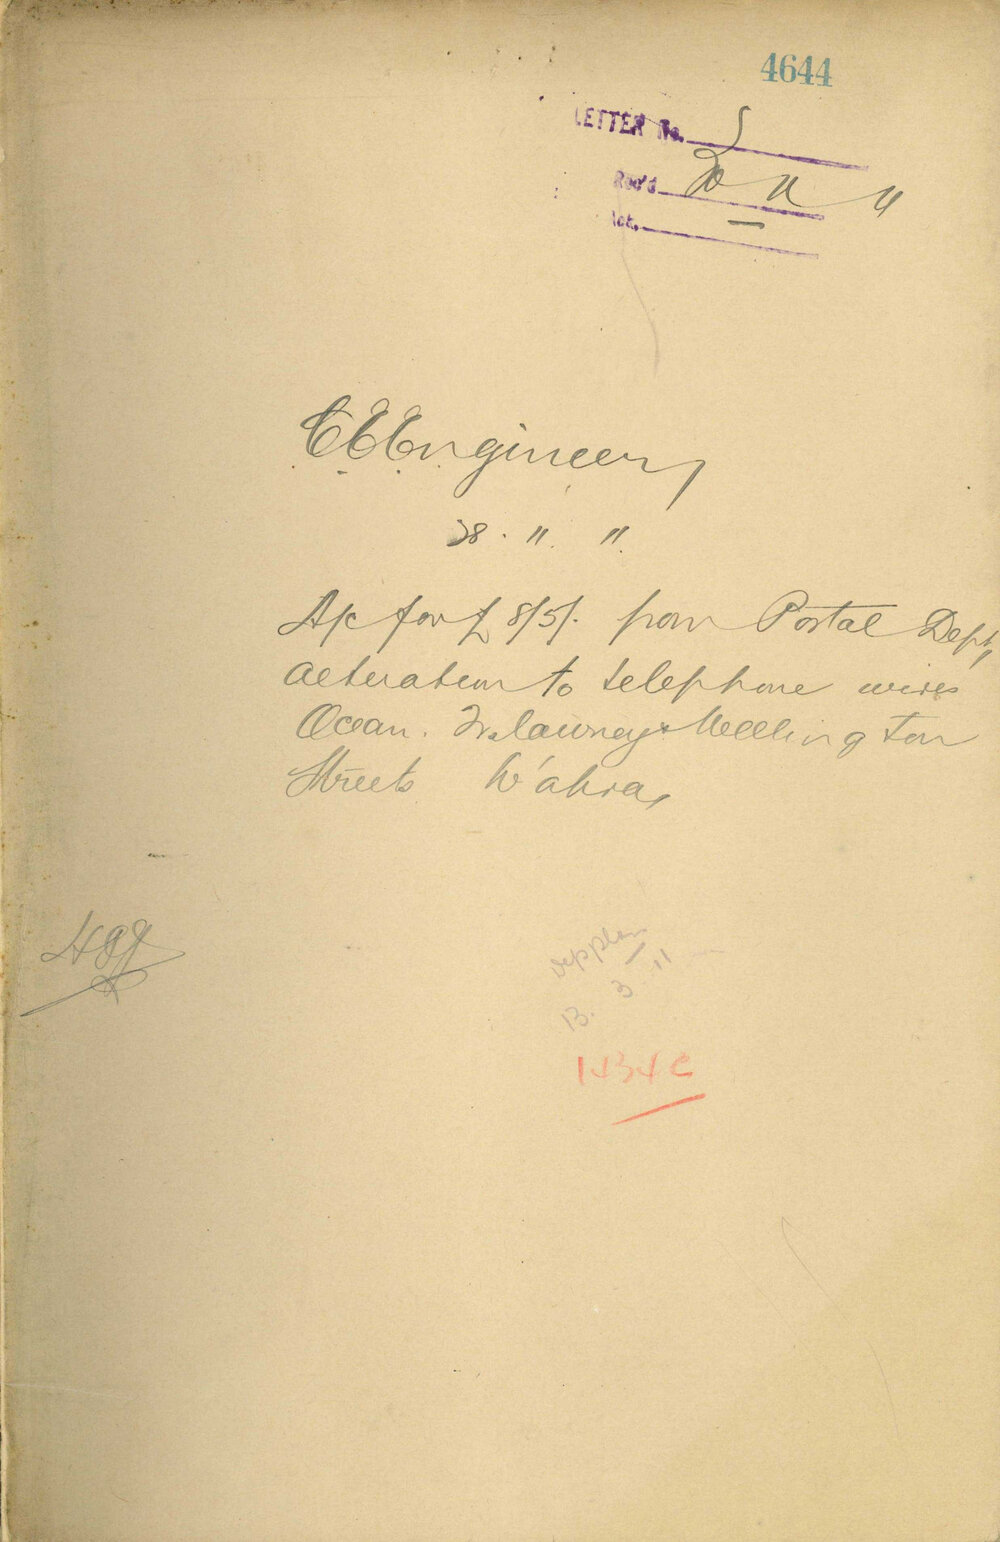 4644
LETTER No.
Rec'd 30 11 11
CEEngineer,
28. 11. 11.
A/c for £8/5/. from Postal Dept,
alteration to telephone wires
Ocean. Trelawney & Wellington
Streets W'ahra,
13. 3. 11
1434 C